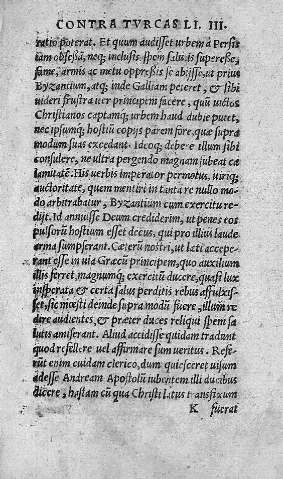 CONTRA TVRCAS LI. III.
ratio poterat. Et quum audisset urbem à Persis
tam obsessã, neq; inclusis spem salutis superesse,
fame, armis ac metu oppressis se abijsse, ut prius
Byzantium, atq; inde Galliam peteret, & sibi
uideri frustra iter principem facere, quũ uictos
Christianos captamq; urbem haud dubie putet,
nec ipsumq; hostiũ copijs parem fore, quæ supra
modum suas excedant. Ideoq; debere illum sibi
consulere, ne ultra pergendo magnam subeat ca
lamitatẽ. His uerbis imperator permotus, uiriq;
auctoritate, quem mentiri in tanta re nullo mo-
do arbitrabatur, Byzantium cum exercitu re-
dijt. Id annuisse Deum crediderim, ut penes eos
pulsorũ hostium esset decus, qui pro illius laude
arma sumpserant. Cæterũ nostri, ut lati accepe-
rant esse in uia Græcũ principem, quo auxilium
illis ferret, magnumq; exercitũ ducere, quasi lux
insperata & certa salus perditis rebus affulsis-
set, sic mœsti deinde supra modũ fuere, illum re
dire audientes, & præter duces reliqui spem sa
lutis amiserant. Aliud accidisse quidam tradunt
quod refellere uel affirmare sum ueritus. Refe-
rut enim cuidam clerico, dum quiesceret uisum
adesse Andream Apostolũ iubentem illi ducibus
dicere, hastam cũ qua Christi latus transfixum
K fuerat